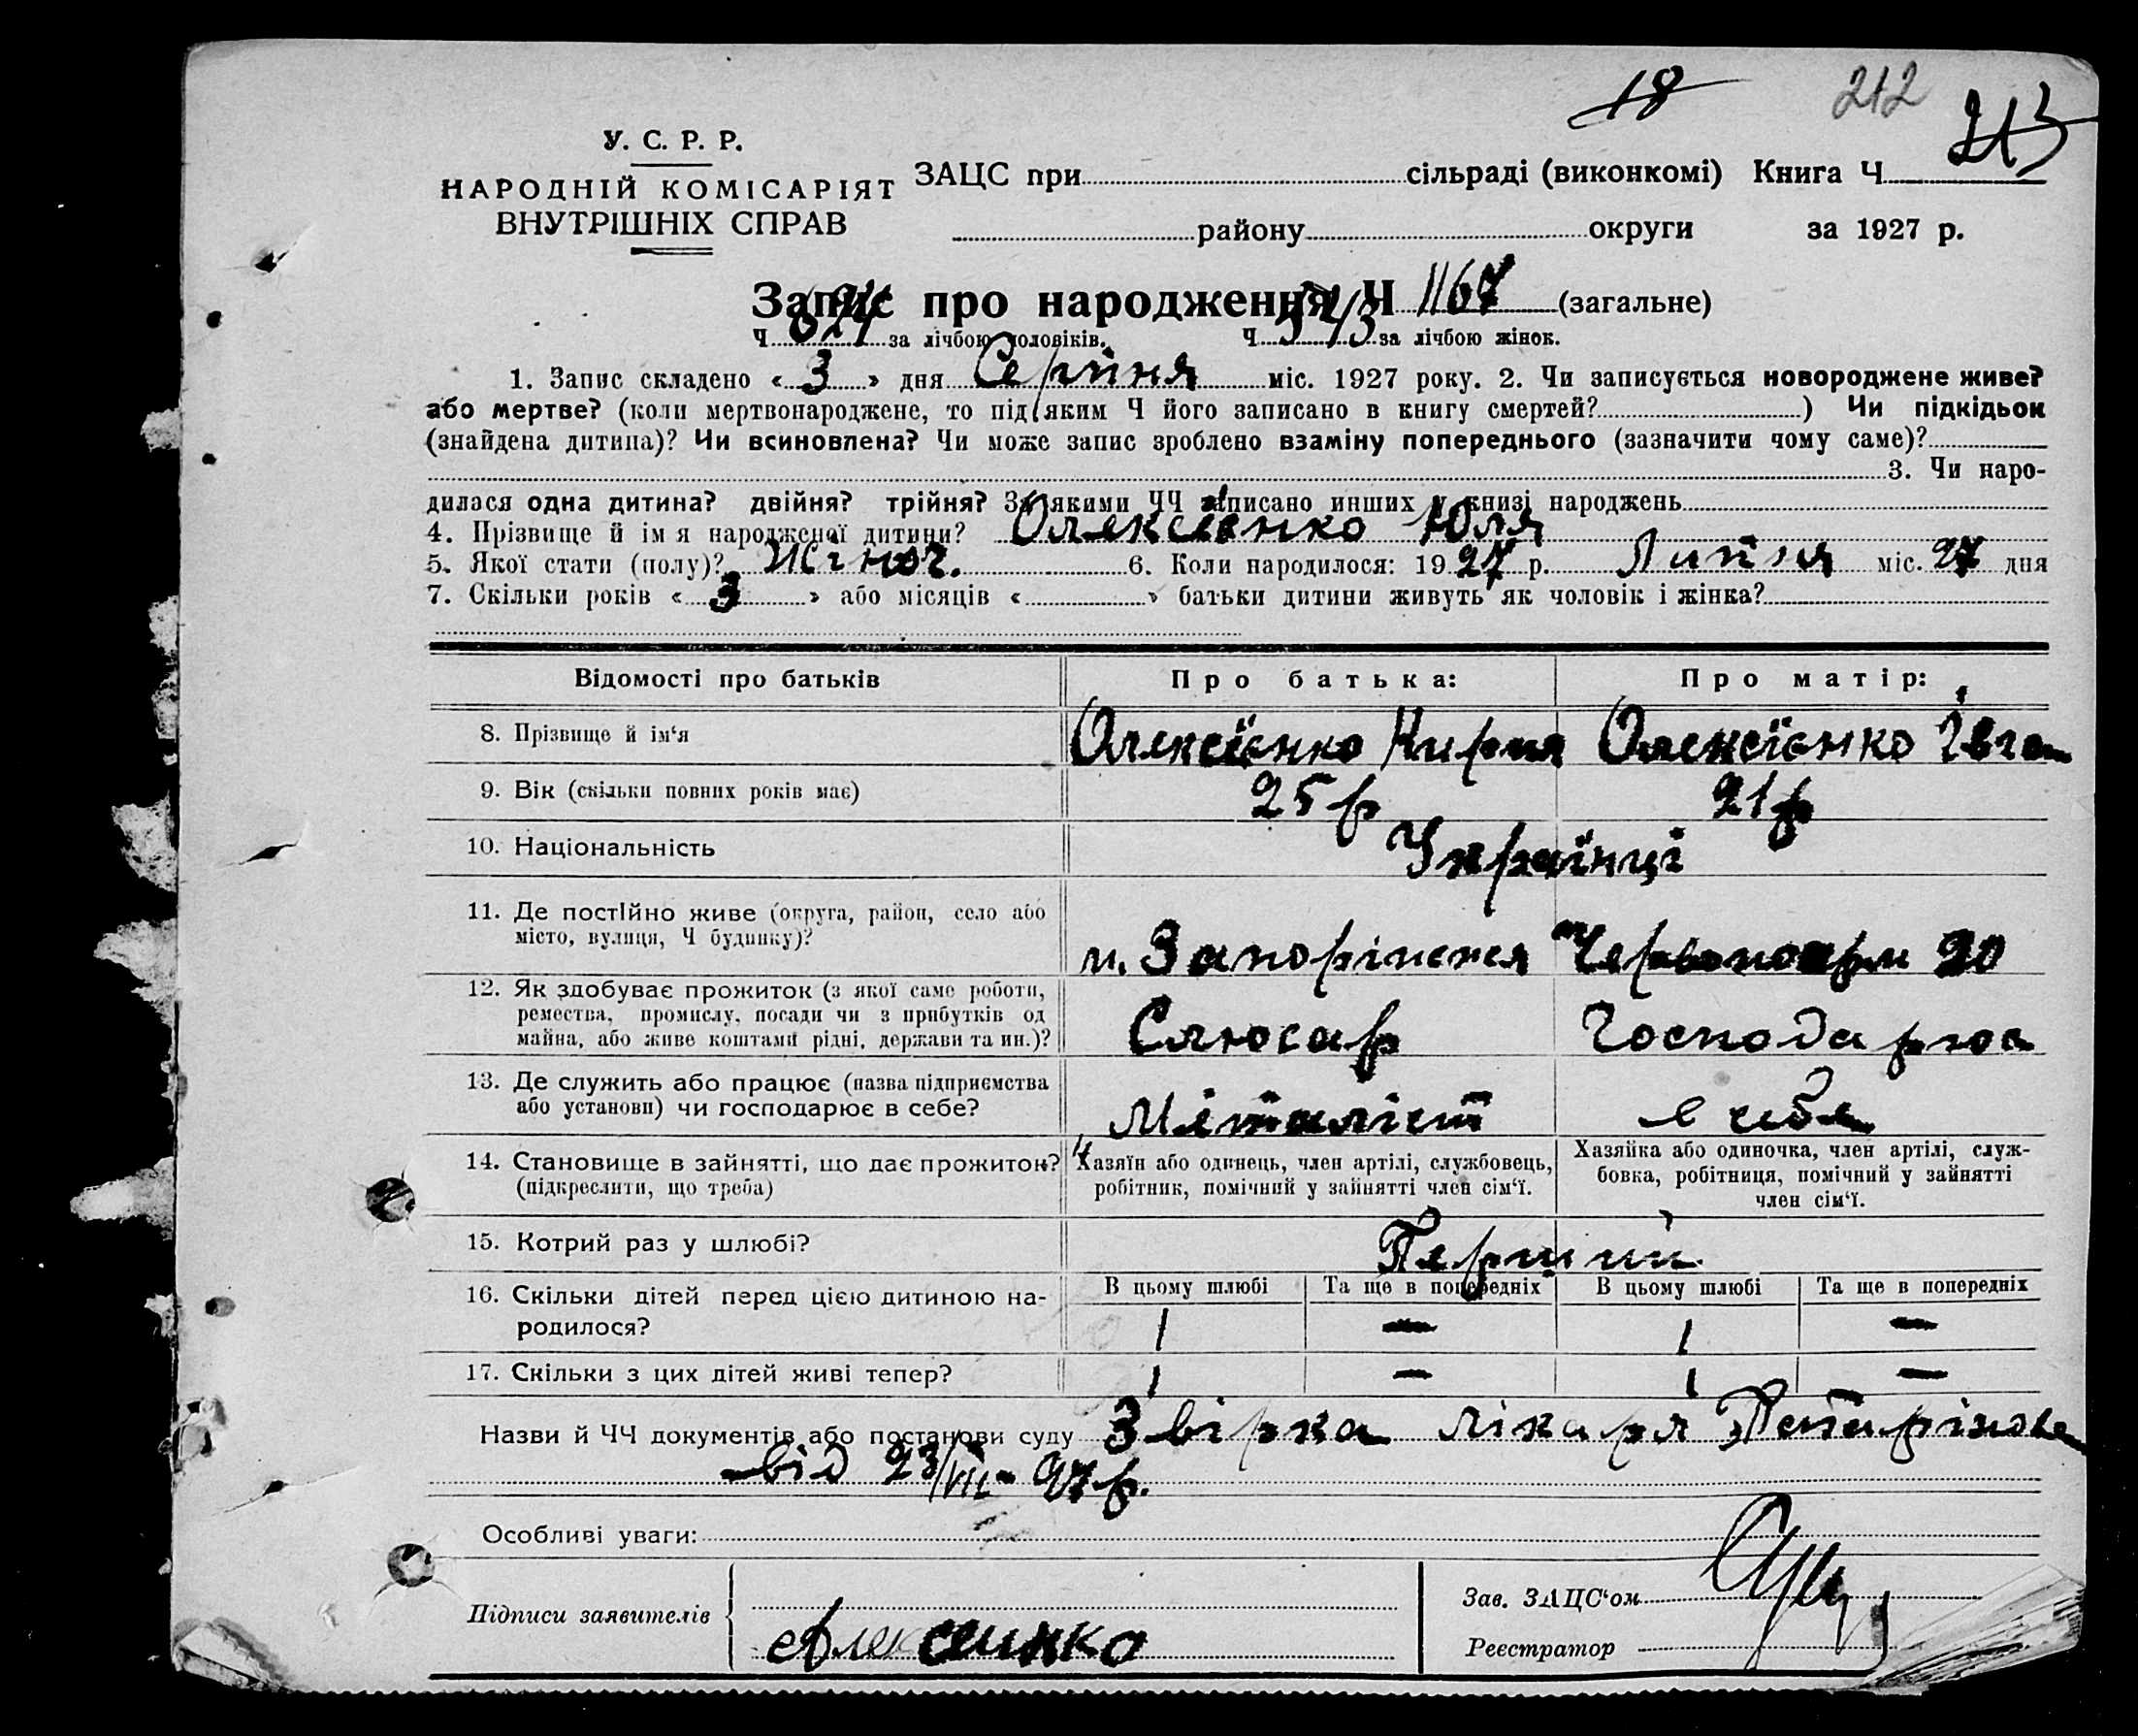 18 212 213
У. С. Р. Р.
НАРОДНІЙ КОМІСАРІЯТ
ВНУТРІШНІХ СПРАВ
ЗАЦС при сільраді (виконкомі) Книга Ч
району округи за 1927 р.
Запис про народження Ч 1167 (загальне)
Ч 624 за лічбою чоловіків. Ч 543 за лічбою жінок.
1. Запис складено « 3 » дня Серпня міс. 1927 року. 2. Чи записується новороджене живе?
або мертве? (коли мертвонароджене, то під яким Ч його записано в книгу смертей? ) Чи підкідьок
(знайдена дитина)? Чи всиновлена? Чи може запис зроблено взаміну попереднього (зазначити чому саме)?
3. Чи наро-
дилася одна дитина? двійня? трійня? За якими ЧЧ записано инших у книзі народжень
4. Прізвище й ім я народженої дитини? Олексієнко Юля
5. Якої стати (полу)? Жіноч. 6. Коли народилося: 1927 р. Липня міс. 27 дня
7. Скільки років « 3 » або місяців « » батьки дитини живуть як чоловік і жінка?
Відомості про батьків Про батька: Про матір:
8. Прізвище й ім‘я Олексієнко Кирил Олексієнко Івга
9. Вік (скільки повних років має) 25 р 21 р
10. Національність Українці
11. Де постійно живе (округа, район, село або
місто, вулиця, Ч будинку)? м. Запоріжжя Червоноарм 20
12. Як здобуває прожиток (з якої саме роботи,
ремества, промислу, посади чи з прибутків од
майна, або живе коштами рідні, держави та ин.)? Слюсар Господарює
13. Де служить або працює (назва підприємства
або установи) чи господарює в себе? Металіст в себе
14. Становище в зайнятті, що дає прожиток?
(підкреслити, що треба)
Хазяїн або одинець, член артілі, службовець,
робітник, помічний у зайнятті член сім‘ї.
Хазяйка або одиночка, член артілі, служ-
бовка, робітниця, помічний у зайнятті
член сім‘ї.
15. Котрий раз у шлюбі? Перший
В цьому шлюбі Та ще в попередніх В цьому шлюбі Та ще в попередніх
16. Скільки дітей перед цією дитиною на-
родилося? 1 — 1 —
17. Скільки з цих дітей живі тепер? 1 — 1 —
Назви й ЧЧ документів або постанови суду Звірка лікаря
від 23/VII - 27 р.
Особливі уваги:
Підписи заявителів Алексеинко
Зав. ЗАЦС‘ом
Реєстратор